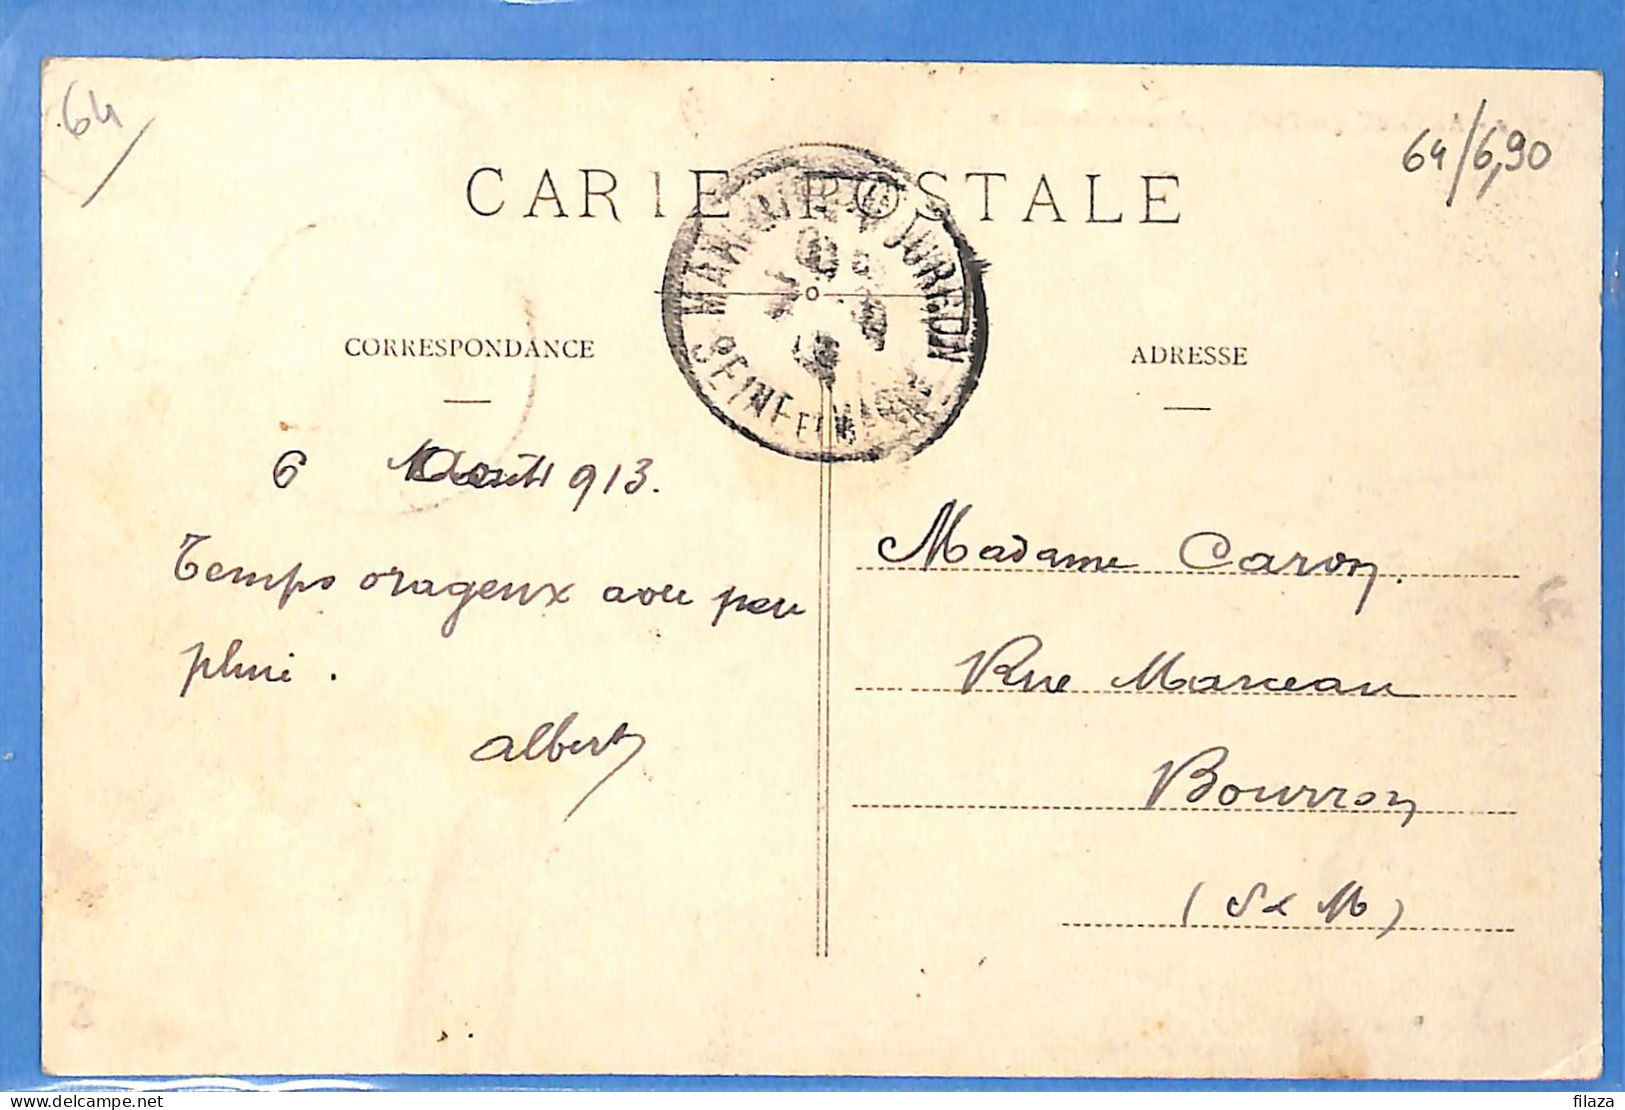 64
64/6,90
CARTE POSTALE
MARLOTTE BOURRON
SEINE-ET-MARNE
CORRESPONDANCE
ADRESSE
6 Août 1913.
Temps orageux avec peu
pluie.
Albert
Madame Caron.
Rue Marceau
Bourron
(S & M)
delcampe.net
filaza